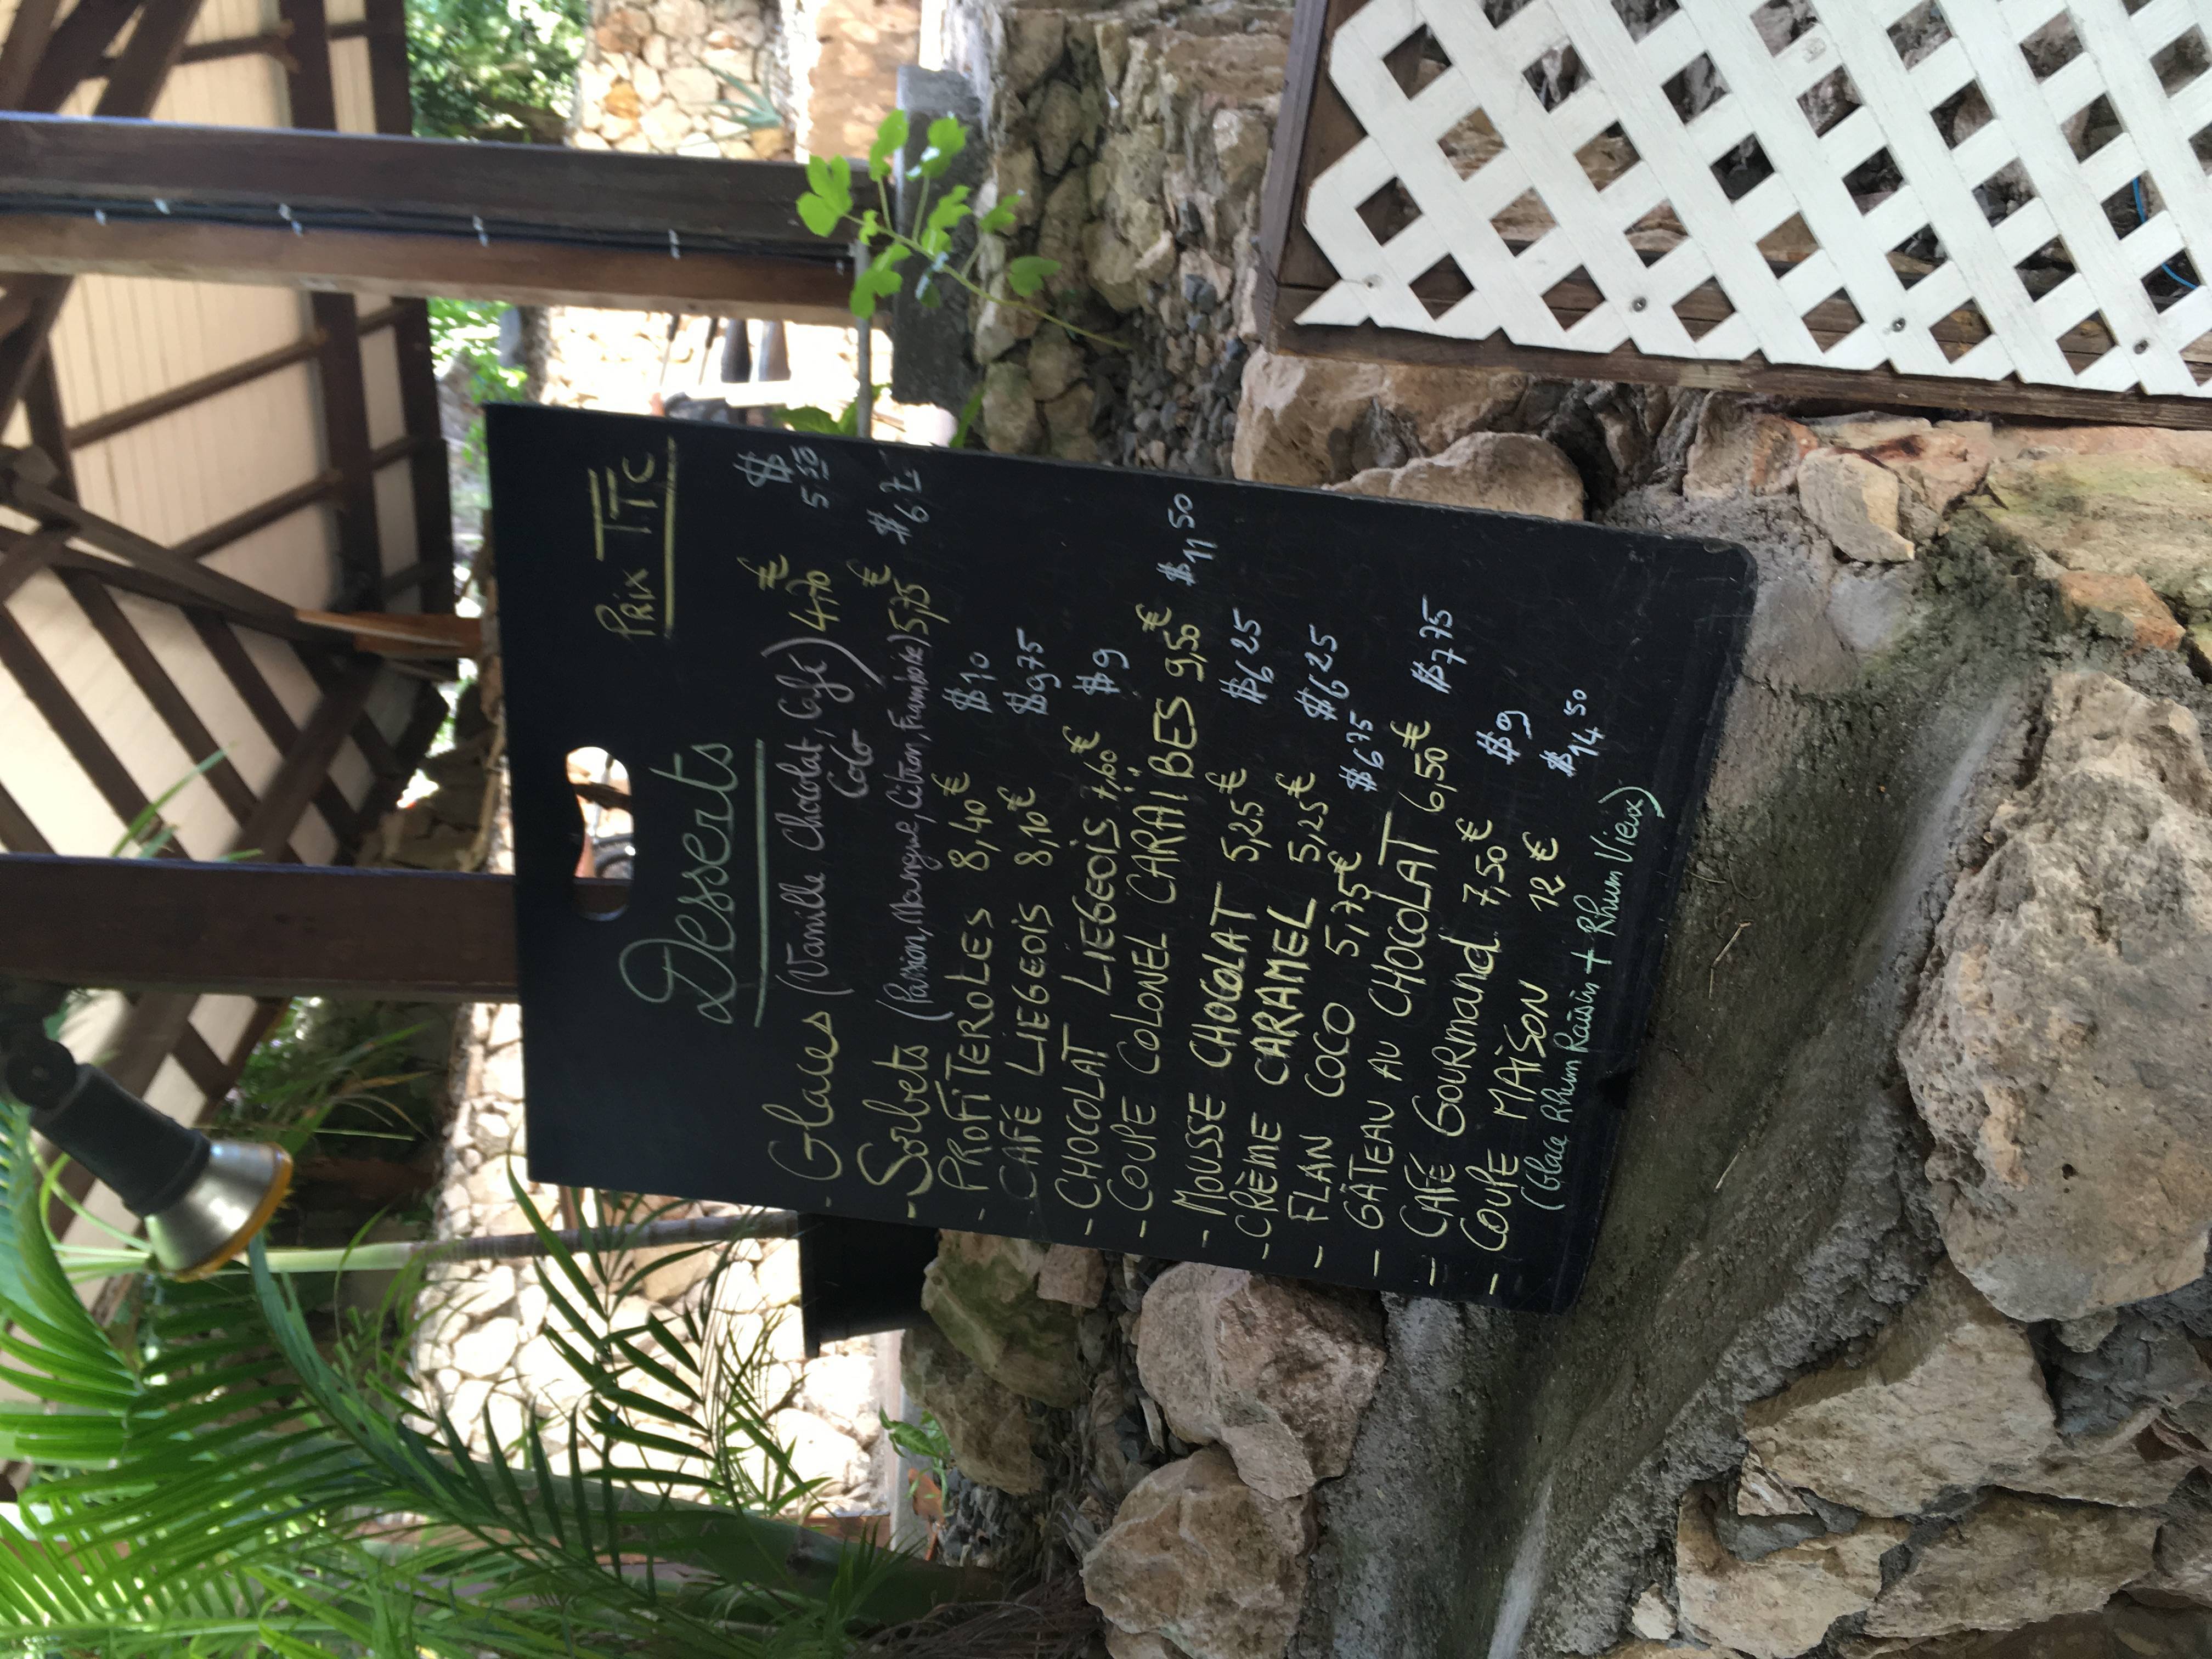 Prix TTC
Desserts
- Glaces (Vanille Chocolat, Café) 4,70 € $ 5 50
Coco
- Sorbets (Passion, Mangue, Citron, Framboise) 5,75 € $ 6 75
- PROFITEROLES 8,40 € $10
- CAFÉ LIEGEOIS 8,10 € $9,75
- CHOCOLAT LIEGEOIS 7,60 € $9
- COUPE COLONEL CARAÏBES 9,50 € $11 50
- MOUSSE CHOCOLAT 5,25 € $6 25
- CRÈME CARAMEL 5,25 € $6 25
- FLAN COCO 5,75 € $6 75
- GÂTEAU AU CHOCOLAT 6,50 € $7 75
- CAFÉ GOURMAND 7,50 € $9
- COUPE MAISON 12 € $14 50
(Glace Rhum Raisin + Rhum Vieux)